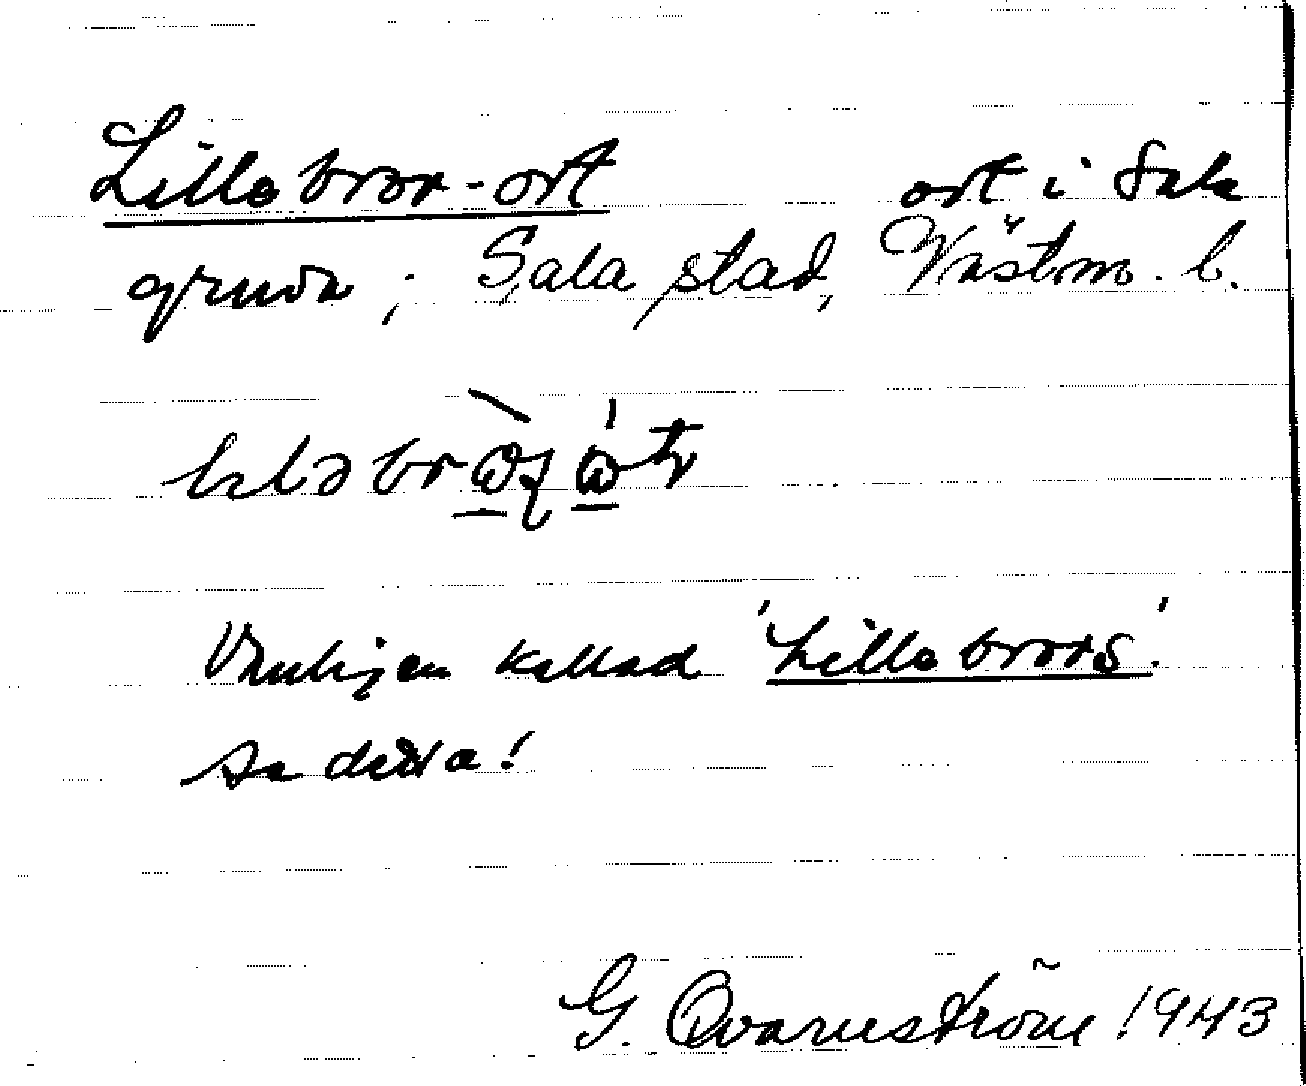 Lillebror-ort ort i Sala
gruva; Sala stad, Västm. l.
Vanligen kallad 'Lillebrors'.
Se detta!
G. Qvarnström 1943